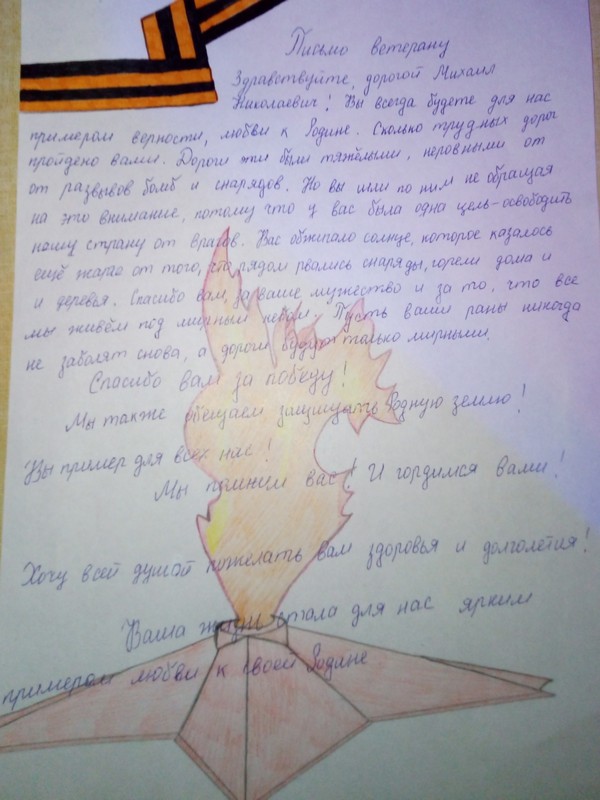 Письмо ветерану
Здравствуйте, дорогой Михаил
Николаевич! Вы всегда будете для нас
примером верности, любви к Родине. Сколько трудных дорог
пройдено вами. Дороги эти были тяжёлыми, неровными от
от развывов бомб и снарядов. Но вы шли по ним не обращая
на это внимание, потому что у вас была одна цель - освободить
нашу страну от врагов. Вас обжигало солнце, которое казалось
ещё жарче от того, что рядом рвались снаряды, горели дома и
и деревья. Спасибо вам, за ваше мужество и за то, что все
мы живём под мирным небом. Пусть ваши раны никогда
не заболят снова, а дороги будут только мирными.
Спасибо вам за победу!
Мы также обещаем защищать родную землю!
Вы пример для всех нас!
Мы помним вас! И гордимся вами!
Хочу всей душой пожелать вам здоровья и долголетия!
Ваша жизнь стала для нас ярким
примером любви к своей Родине